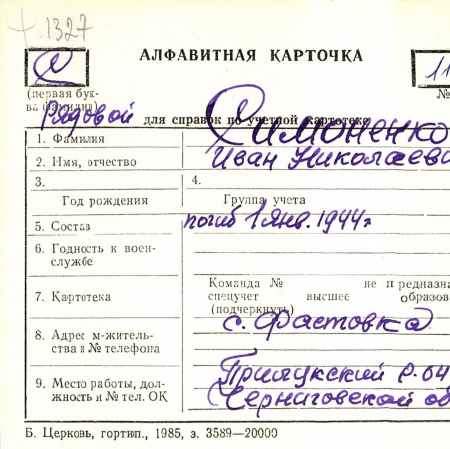 + 1327
АЛФАВИТНАЯ КАРТОЧКА
С 11
(первая бук- №
ва фамилии)
Рядовой для справок по учетной картотеке
1. Фамилия Симоненко
2. Имя, отчество Иван Николаев
3. 4.
Год рождения Группа учета
5. Состав погиб 1 янв. 1944 г
6. Годность к воен-
службе
Команда № не предназна
7. Картотека спецучет высшее образов
(подчеркнуть)
8. Адрес м-житель- с. Фастовка
ства и № телефона
Прилукский р-он
9. Место работы, дол- Черниговской об
жность и № тел. ОК
Б. Церковь, гортип., 1985, з. 3589—20000